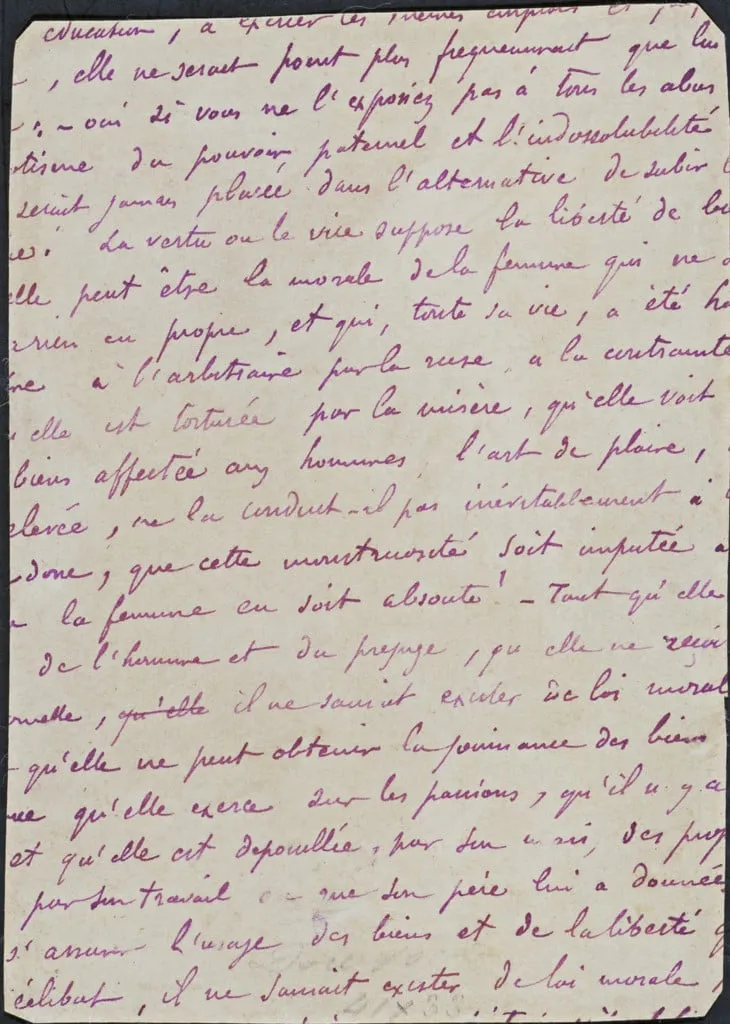 education, a exercer les mêmes emplois et
, elle ne serait point plus frequemment que lui
: - oui si vous ne l'exposiez pas à tous les abus
otisme du pouvoir paternel et l'indissolubilité
serait jamais placée dans l'alternative de subir
ie! La vertu ou le vice suppose la liberté de
elle peut être la morale de la femme qui ne
rien en propre, et qui, toute sa vie, a été
à l'arbitraire par la ruse, a la contrainte
elle est torturée par la misère, qu'elle voit
biens affectée aux hommes l'art de plaire,
elevée, ne la conduit-il pas inévitablement à
donc, que cette monstruosité soit imputée
la femme en soit absoute! - Tant qu'elle
de l'homme et du prejugé, qu elle ne reçoi
rnelle, qu'elle il ne saurait exister de loi moral
qu'elle ne peut obtenir la jouissance des biens
que qu'elle exerce sur les passions, qu'il n'y a
et qu'elle est depouillée, par son mari, des prop
par son travail ou que son père lui a donnée
s'assurer l'usage des biens et de la liberté
célibat, il ne saurait exister de loi morale,
41 x 33